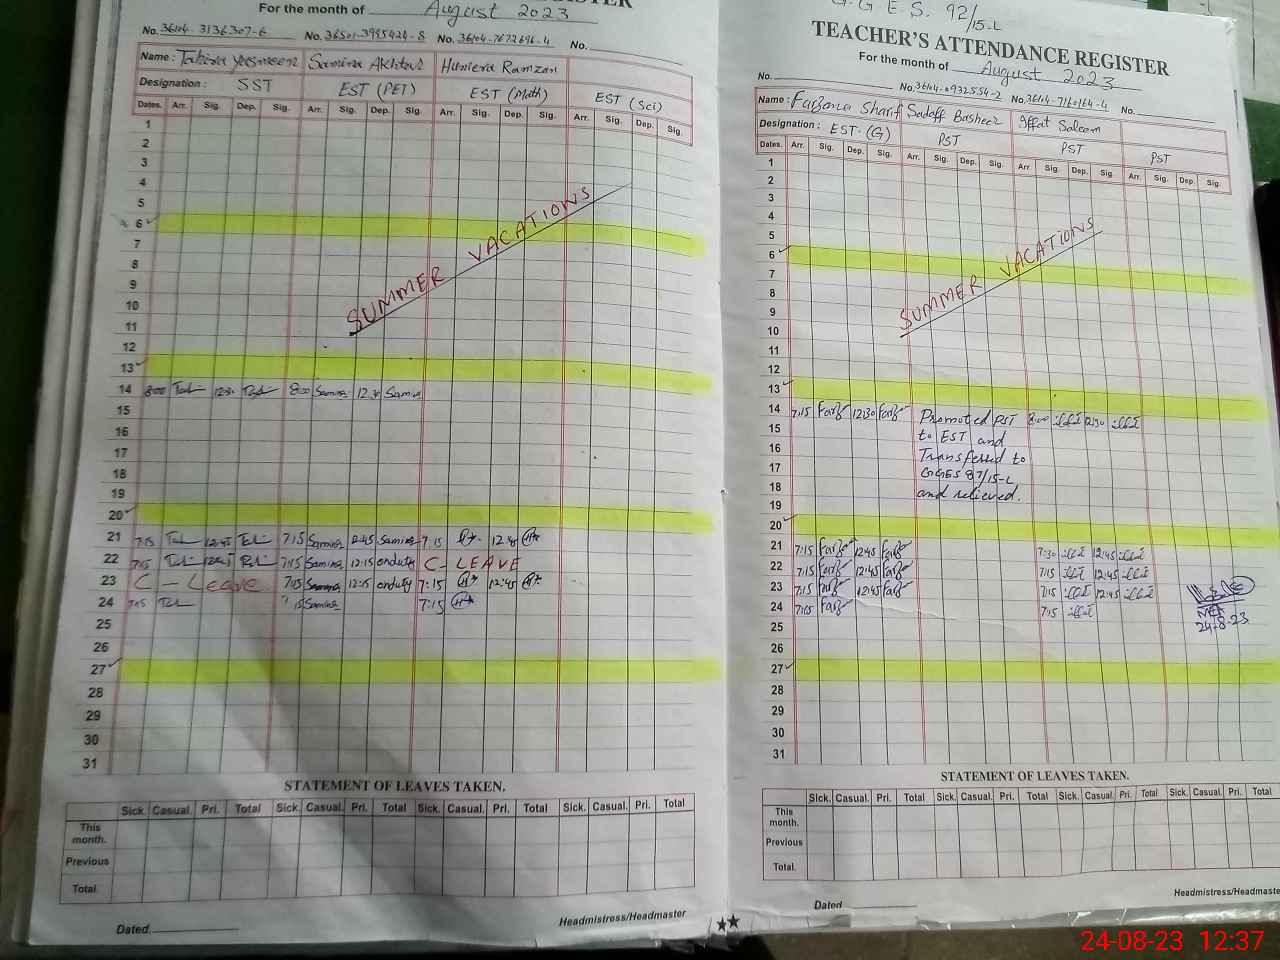 REGISTER
For the month of August 2023
No. 36104-3136307-6 No. 36501-3995424-8 No. 36104-7672696-4 No.
Name: Tahira Yasmeen Samina Akhtar Humera Ramzan
Designation: SST EST (PET) EST (Math) EST (Sci)
Dates. Arr. Sig. Dep. Sig. Arr. Sig. Dep. Sig. Arr. Sig. Dep. Sig. Arr. Sig. Dep. Sig.
1
2
3
4
5
6
7
8
9
10
11
12
SUMMER VACATIONS
13
14 8:00 12:30 8:00 Samina 12:30 Samina
15
16
17
18
19
20
21 7:15 12:45 7:15 Samina 12:45 Samina 7:15 12:45
22 7:15 12:45 7:15 Samina 12:15 onduty C - LEAVE
23 C - Leave 7:15 Samina 12:15 onduty 7:15 12:45
24 7:15 15 Samina 7:15
25
26
27
28
29
30
31
STATEMENT OF LEAVES TAKEN.
Sick. Casual. Pri. Total Sick. Casual. Pri. Total Sick. Casual. Pri. Total Sick. Casual. Pri. Total
This month.
Previous
Total
Dated. Headmistress/Headmaster
G.G.E.S. 92/15-L
TEACHER'S ATTENDANCE REGISTER
For the month of August 2023
No. No. 36104-0932554-2 No. 36104-7160164-4 No.
Name: Farzana Sharif Sadaff Basheer Iffat Saleem
Designation: EST (G) PST PST PST
Dates. Arr. Sig. Dep. Sig. Arr. Sig. Dep. Sig. Arr. Sig. Dep. Sig. Arr. Sig. Dep. Sig.
1
2
3
4
5
6
7
8
9
10
11
12
SUMMER VACATIONS
13
14 7:15 Farz 12:30 Farz 8:00 12:30
15
16
17
18
Promoted PST
to EST and
Transferred to
GGES 87/15-L
and relieved.
19
20
21 7:15 Farz 12:45 Farz 7:30 12:45
22 7:15 Farz 12:45 Farz 7:15 12:45
23 7:15 Farz 12:45 Farz 7:15 12:45
24 7:05 Farz 7:15
24-8-23
25
26
27
28
29
30
31
STATEMENT OF LEAVES TAKEN.
Sick. Casual. Pri. Total Sick. Casual. Pri. Total Sick. Casual. Pri. Total Sick. Casual. Pri. Total
This month.
Previous
Total.
Dated Headmistress/Headmaste
24-08-23 12:37